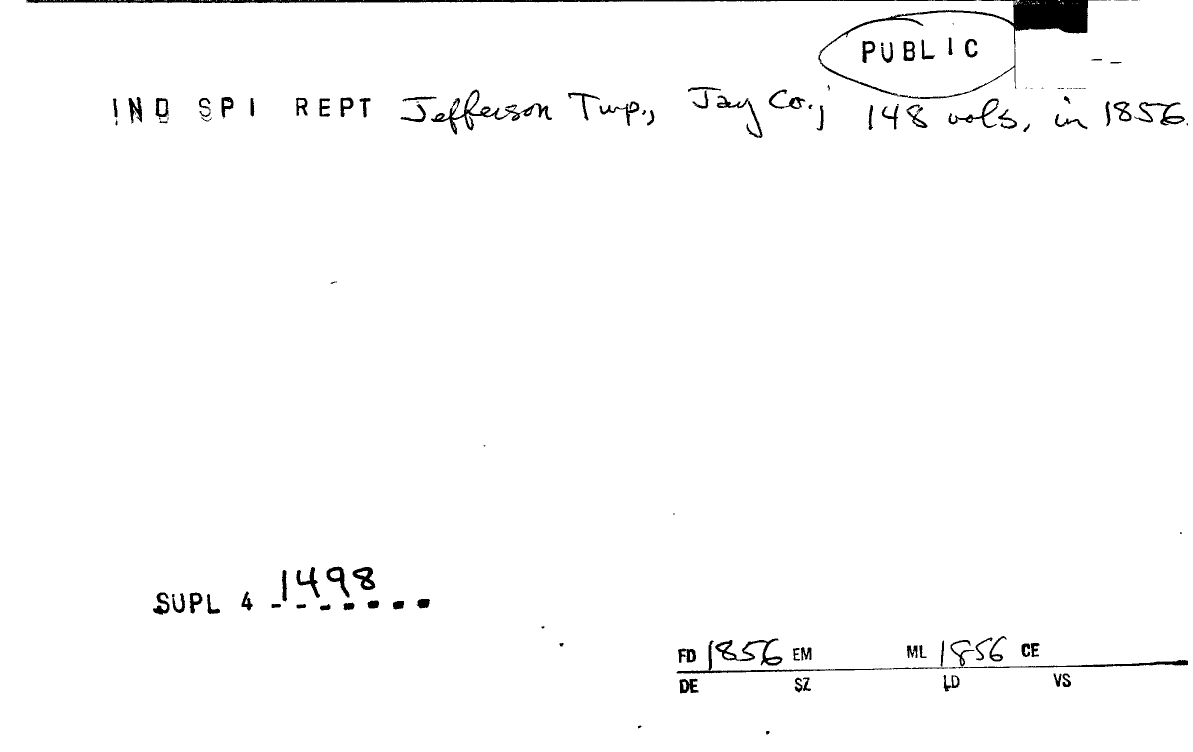 PUBLIC
IND SPI REPT Jefferson Twp., Jay Co.; 148 vols, in 1856.
SUPL 4 1498
FD 1856 EM ML 1856 CE
DE SZ LD VS